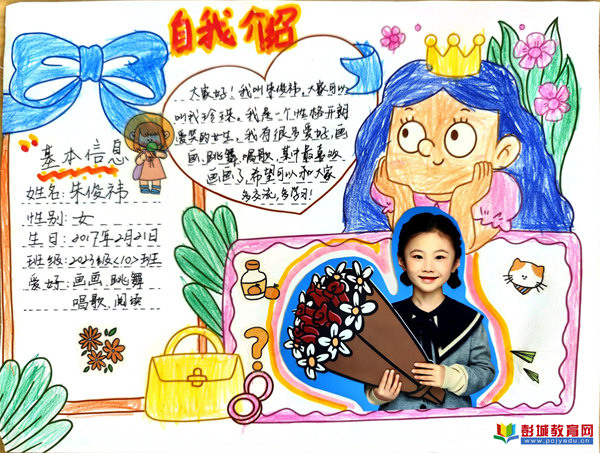 自我介绍
大家好！我叫朱俊祎，大家可以
叫我玲珠，我是一个性格开朗
爱笑的女生，我有很多爱好，画
画、跳舞、唱歌，其中最喜欢
画画了，希望可以和大家
多交流，多学习！
基本信息
姓名：朱俊祎
性别：女
生日：2017年2月21日
班级：2023级<10>班
爱好：画画、跳舞
唱歌、阅读
彭城教育网
www.pcjyedu.cn